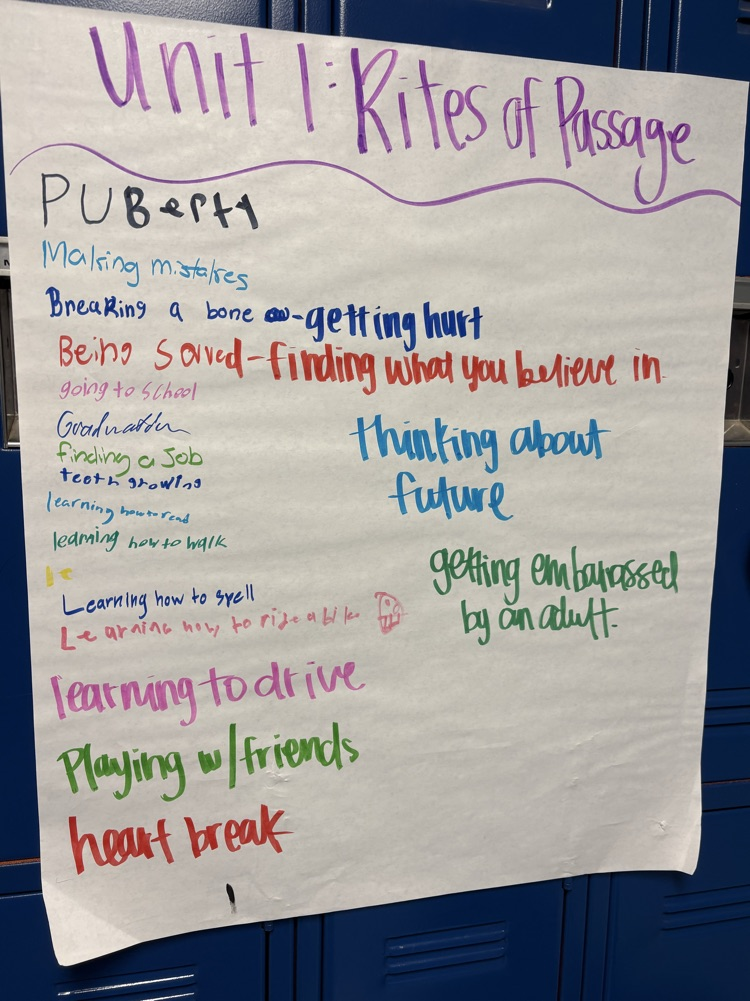 Unit 1: Rites of Passage
PUBerty
Making mistakes
Breaking a bone - getting hurt
Being saved - finding what you believe in
going to school
Graduation
finding a Job
teeth growing
learning how to read
learning how to walk
le
Learning how to spell
Learning how to ride a bike
learning to drive
Playing w/ friends
heart break
thinking about
future
getting embarassed
by an adult.